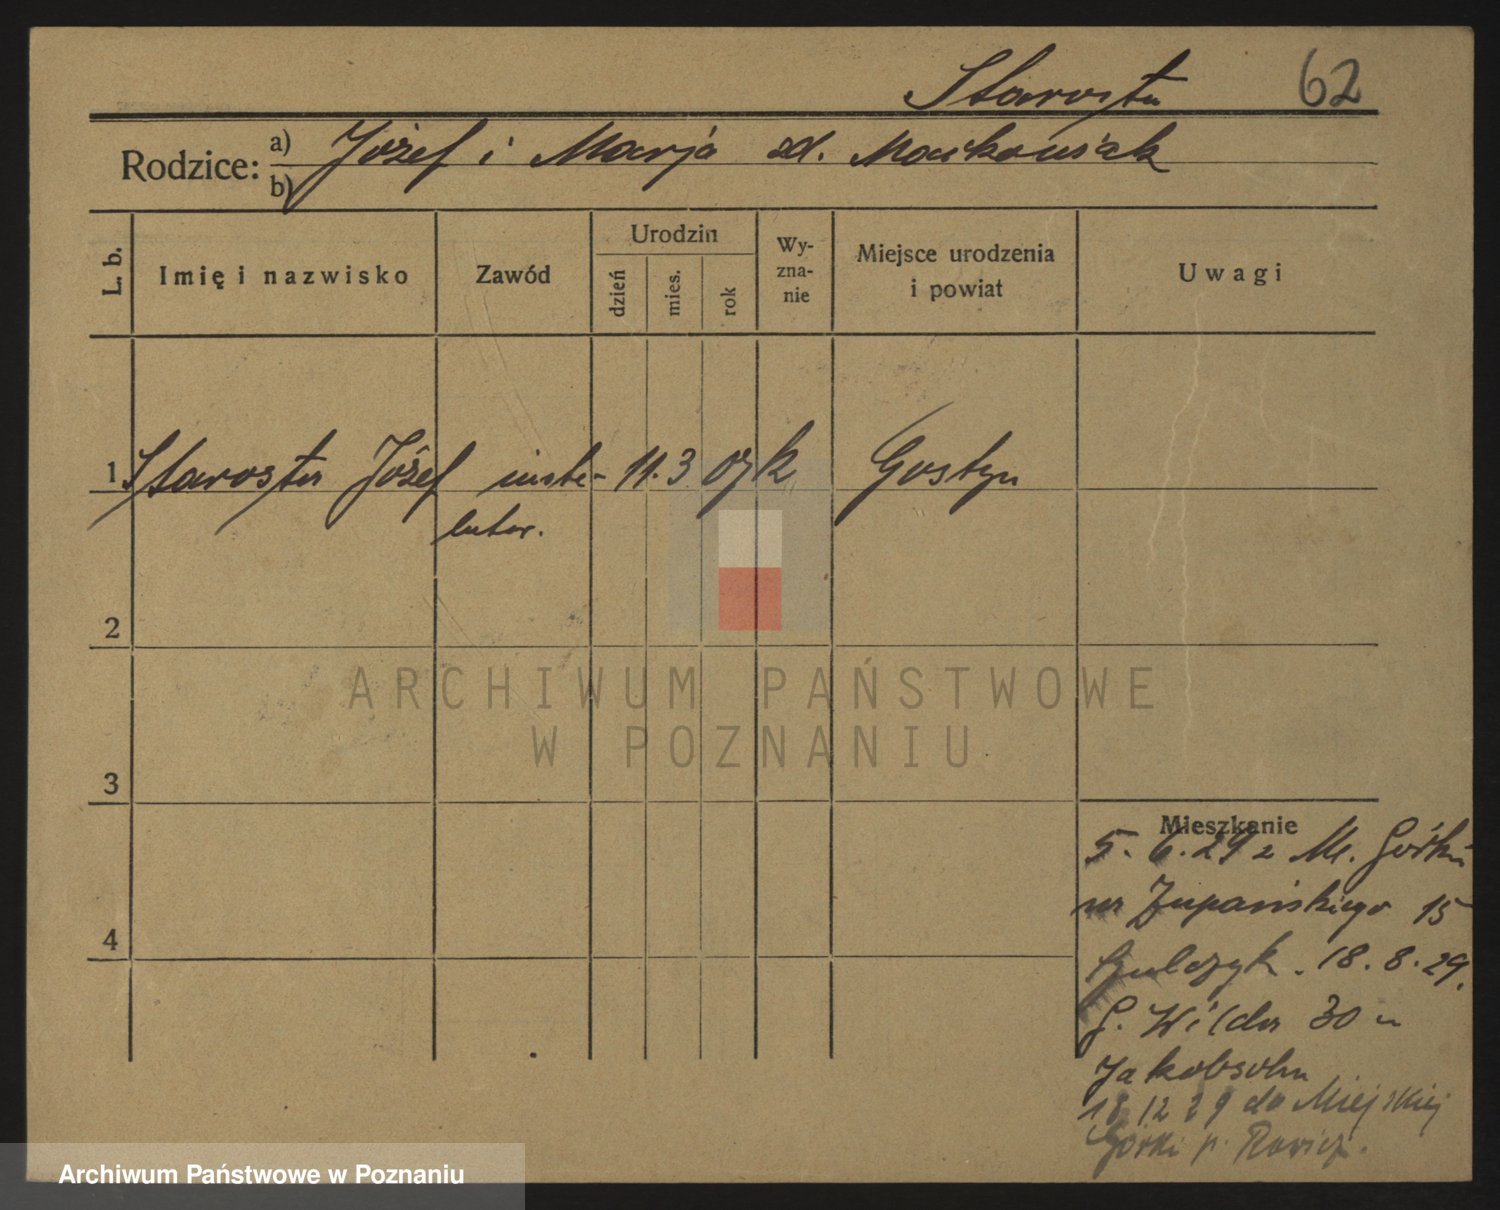 Starosta 62
Rodzice: a) Józef i Marja zd. Maćkowiak
b)
L. b. Imię i nazwisko Zawód Urodzin dzień mies. rok Wy-zna-nie Miejsce urodzenia i powiat Uwagi
1 Starosta Józef 11. 3 07 k Gostyn
2
ARCHIWUM PAŃSTWOWE
W POZNANIU
3
Mieszkanie
5. 6. 29 z M. Górki
na Żupańskiego 15
4
18. 8. 29.
G. Wilda 30 u
Jakobsohn
18 12 29 do Miejskiej
Górki p. Rawicz.
Archiwum Państwowe w Poznaniu